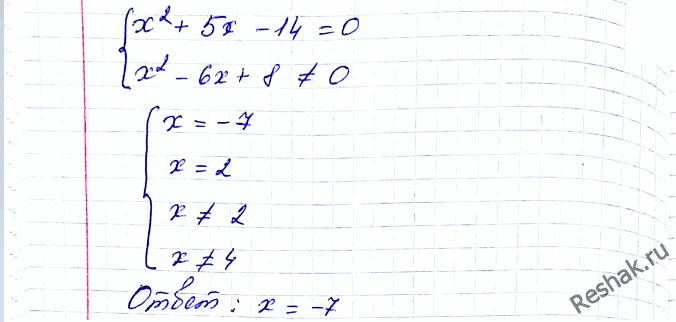 x² + 5x - 14 = 0
x² - 6x + 8 ≠ 0
x = -7
x = 2
x ≠ 2
x ≠ 4
Ответ: x = -7
Reshak.ru